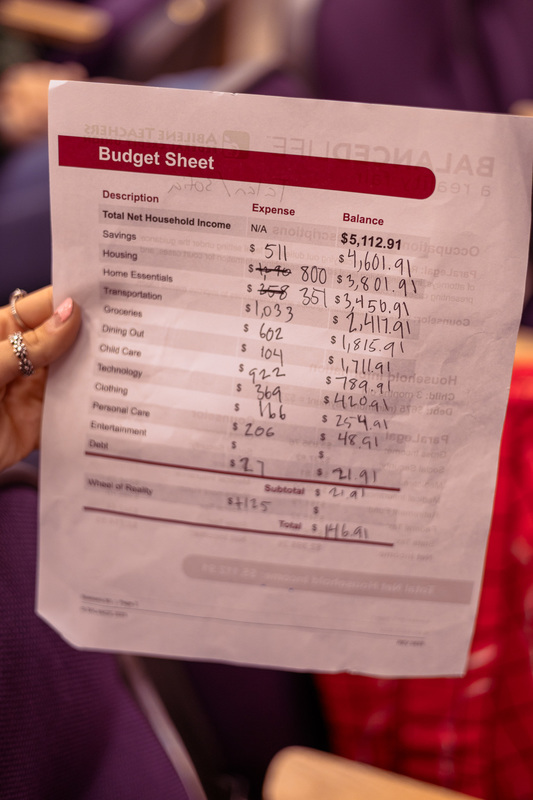 Budget Sheet
Description Expense Balance
Total Net Household Income N/A $5,112.91
Savings $ 511 $4,601.91
Housing $ 800 $3,801.91
Home Essentials $ 358 351 $3,450.91
Transportation $1,033 $2,417.91
Groceries $ 602 $1,815.91
Dining Out $ 104 $1,711.91
Child Care $ 922 $ 789.91
Technology $ 369 $ 420.91
Clothing $ 166 $ 254.91
Personal Care $ 206 $ 48.91
Entertainment $ $
Debt $ 27 $ 21.91
Subtotal $ 21.91
Wheel of Reality $+125 $
Total $ 146.91